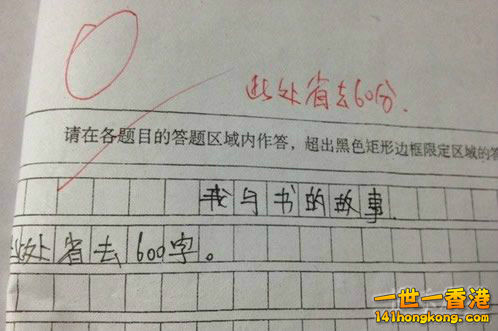 此处省去60分.
请在各题目的答题区域内作答，超出黑色矩形边框限定区域的答
我与书的故事.
此处省去600字。
一世一香港
141hongkong.com